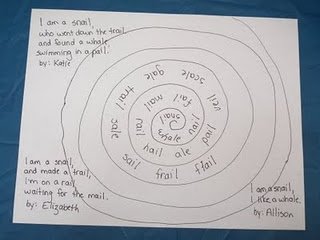 I am a snail,
who went down the trail,
and found a whale
swimming in a pail.
by: Katie
snail
whale
nail
fail
mail
rail
hail
ale
pail
veil
scale
gale
trail
sale
sail
frail
flail
I am a snail,
and made a trail,
I'm on a rail
waiting for the mail.
by: Elizabeth
I am a snail,
I like a whale.
by: Allison